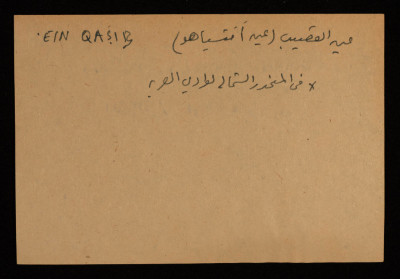 ·EIN QAṢIB عين القصيب (عين أفتسياهو)
x في المنحدر الشمالي لوادي العربه